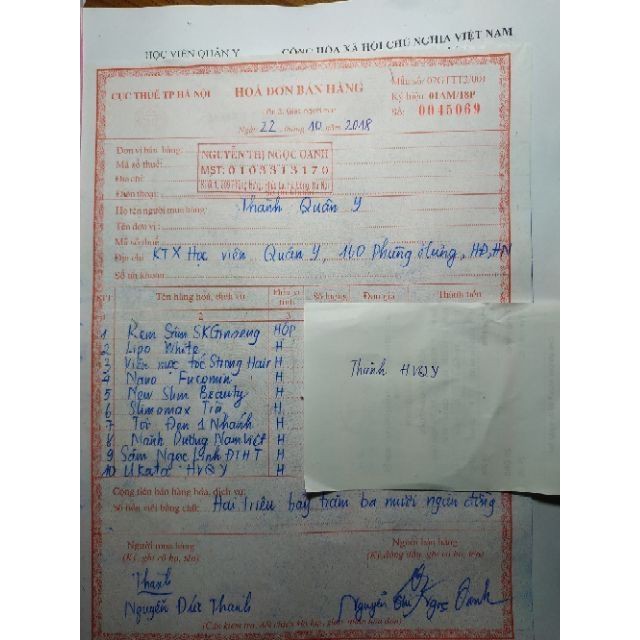 HỌC VIỆN QUÂN Y
CỘNG HÒA XÃ HỘI CHỦ NGHĨA VIỆT NAM
CỤC THUẾ TP HÀ NỘI
HOÁ ĐƠN BÁN HÀNG
Mẫu số: 02GTTT3/001
Ký hiệu: 01AM/18P
Số: 0045069
Ngày 22 tháng 10 năm 2018
Đơn vị bán hàng:
Mã số thuế:
Địa chỉ:
Điện thoại:
NGUYỄN THỊ NGỌC OANH
MST: 0105313170
Họ tên người mua hàng: Thành Quân Y
Tên đơn vị:
Mã số thuế:
Địa chỉ: KTX Học viện Quân Y, 160 Phùng Hưng, HĐ, HN
Số tài khoản:
STT Tên hàng hóa, dịch vụ Đơn vị tính Số lượng Đơn giá Thành tiền
2 3
1 Kem Sâm SKGinseng HỘP
2 Lipo White H
3 Viên mọc tóc Strong Hair H
4 Nano Fucomin H
5 New Slim Beauty H
6 Slimomax H
7 Tỏi Đen 1 Nhánh H
8 Mãnh Dương Nam Việt H
9 Sâm Ngọc Linh H
10 Ukata HVQY H
Thành HVQY
Cộng tiền bán hàng hóa, dịch vụ:
Số tiền viết bằng chữ: Hai triệu bảy trăm ba mươi ngàn đồng
Người mua hàng
(Ký, ghi rõ họ, tên)
Người bán hàng
(Ký, đóng dấu, ghi rõ họ, tên)
Thành
Nguyễn Đức Thành
Nguyễn Thị Ngọc Oanh